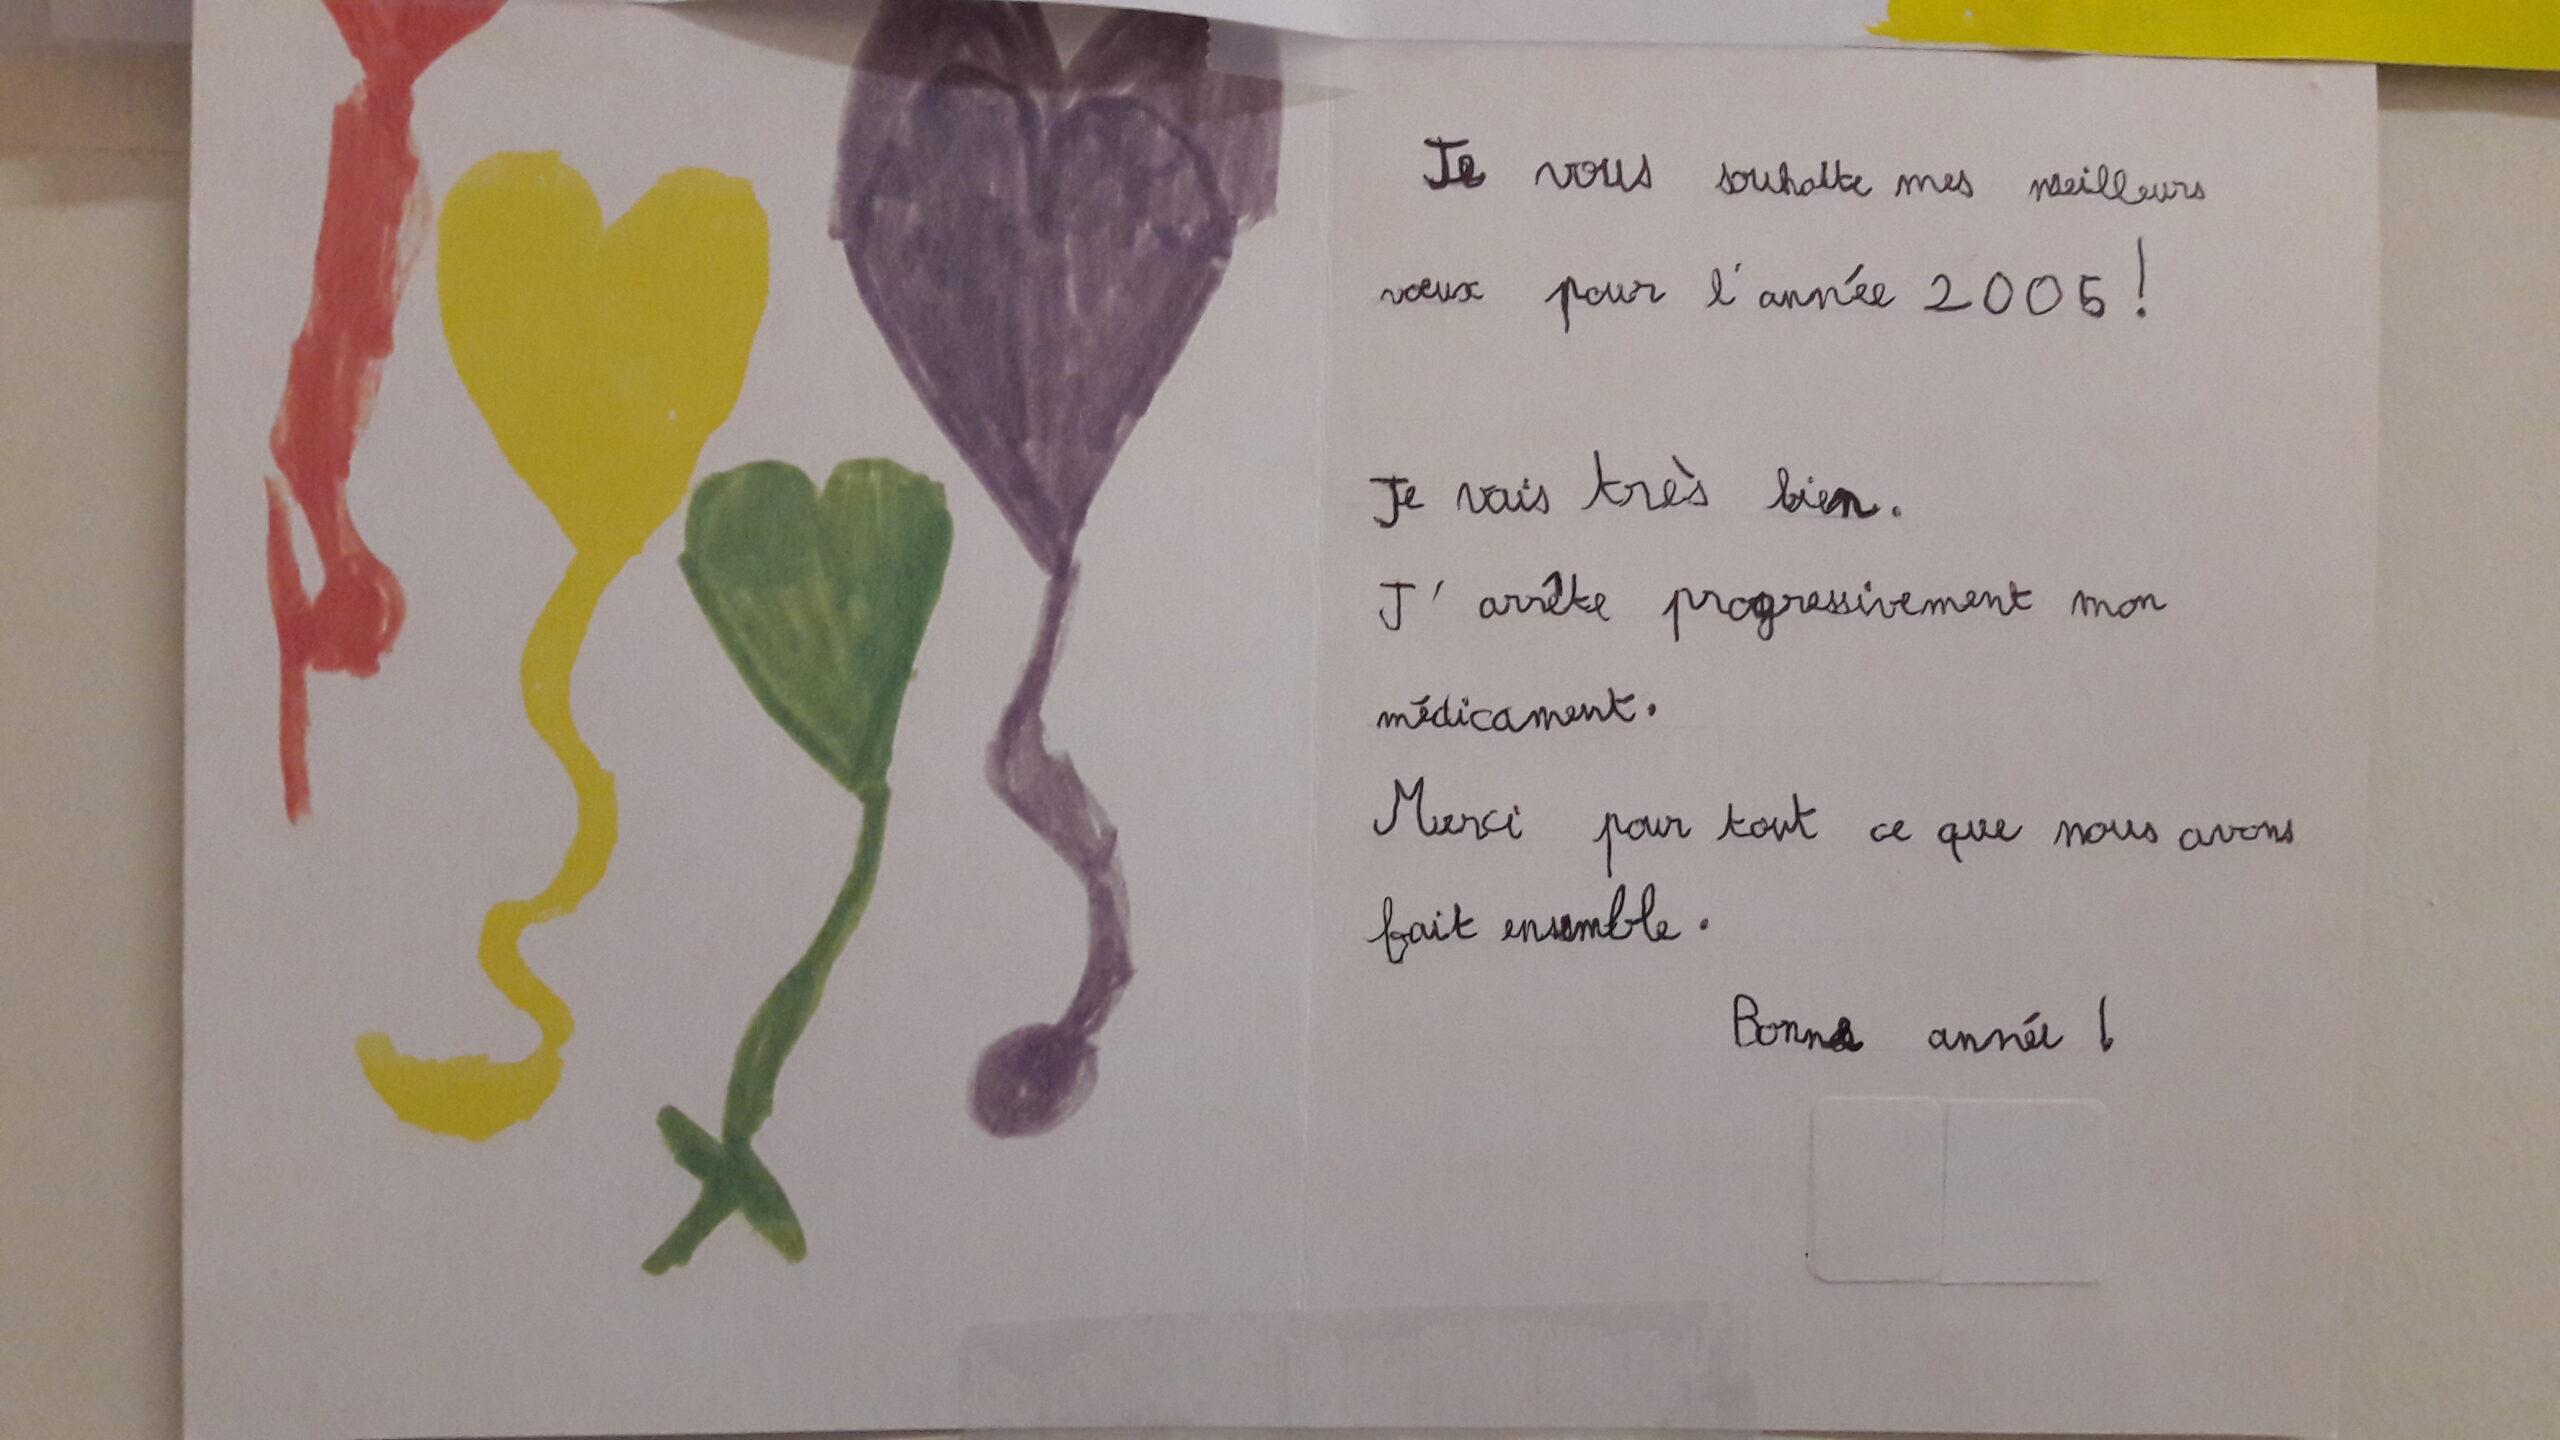 Je vous souhaite mes meilleurs
vœux pour l'année 2005!
Je vais très bien.
J'arrête progressivement mon
médicament.
Merci pour tout ce que nous avons
fait ensemble.
Bonne année !